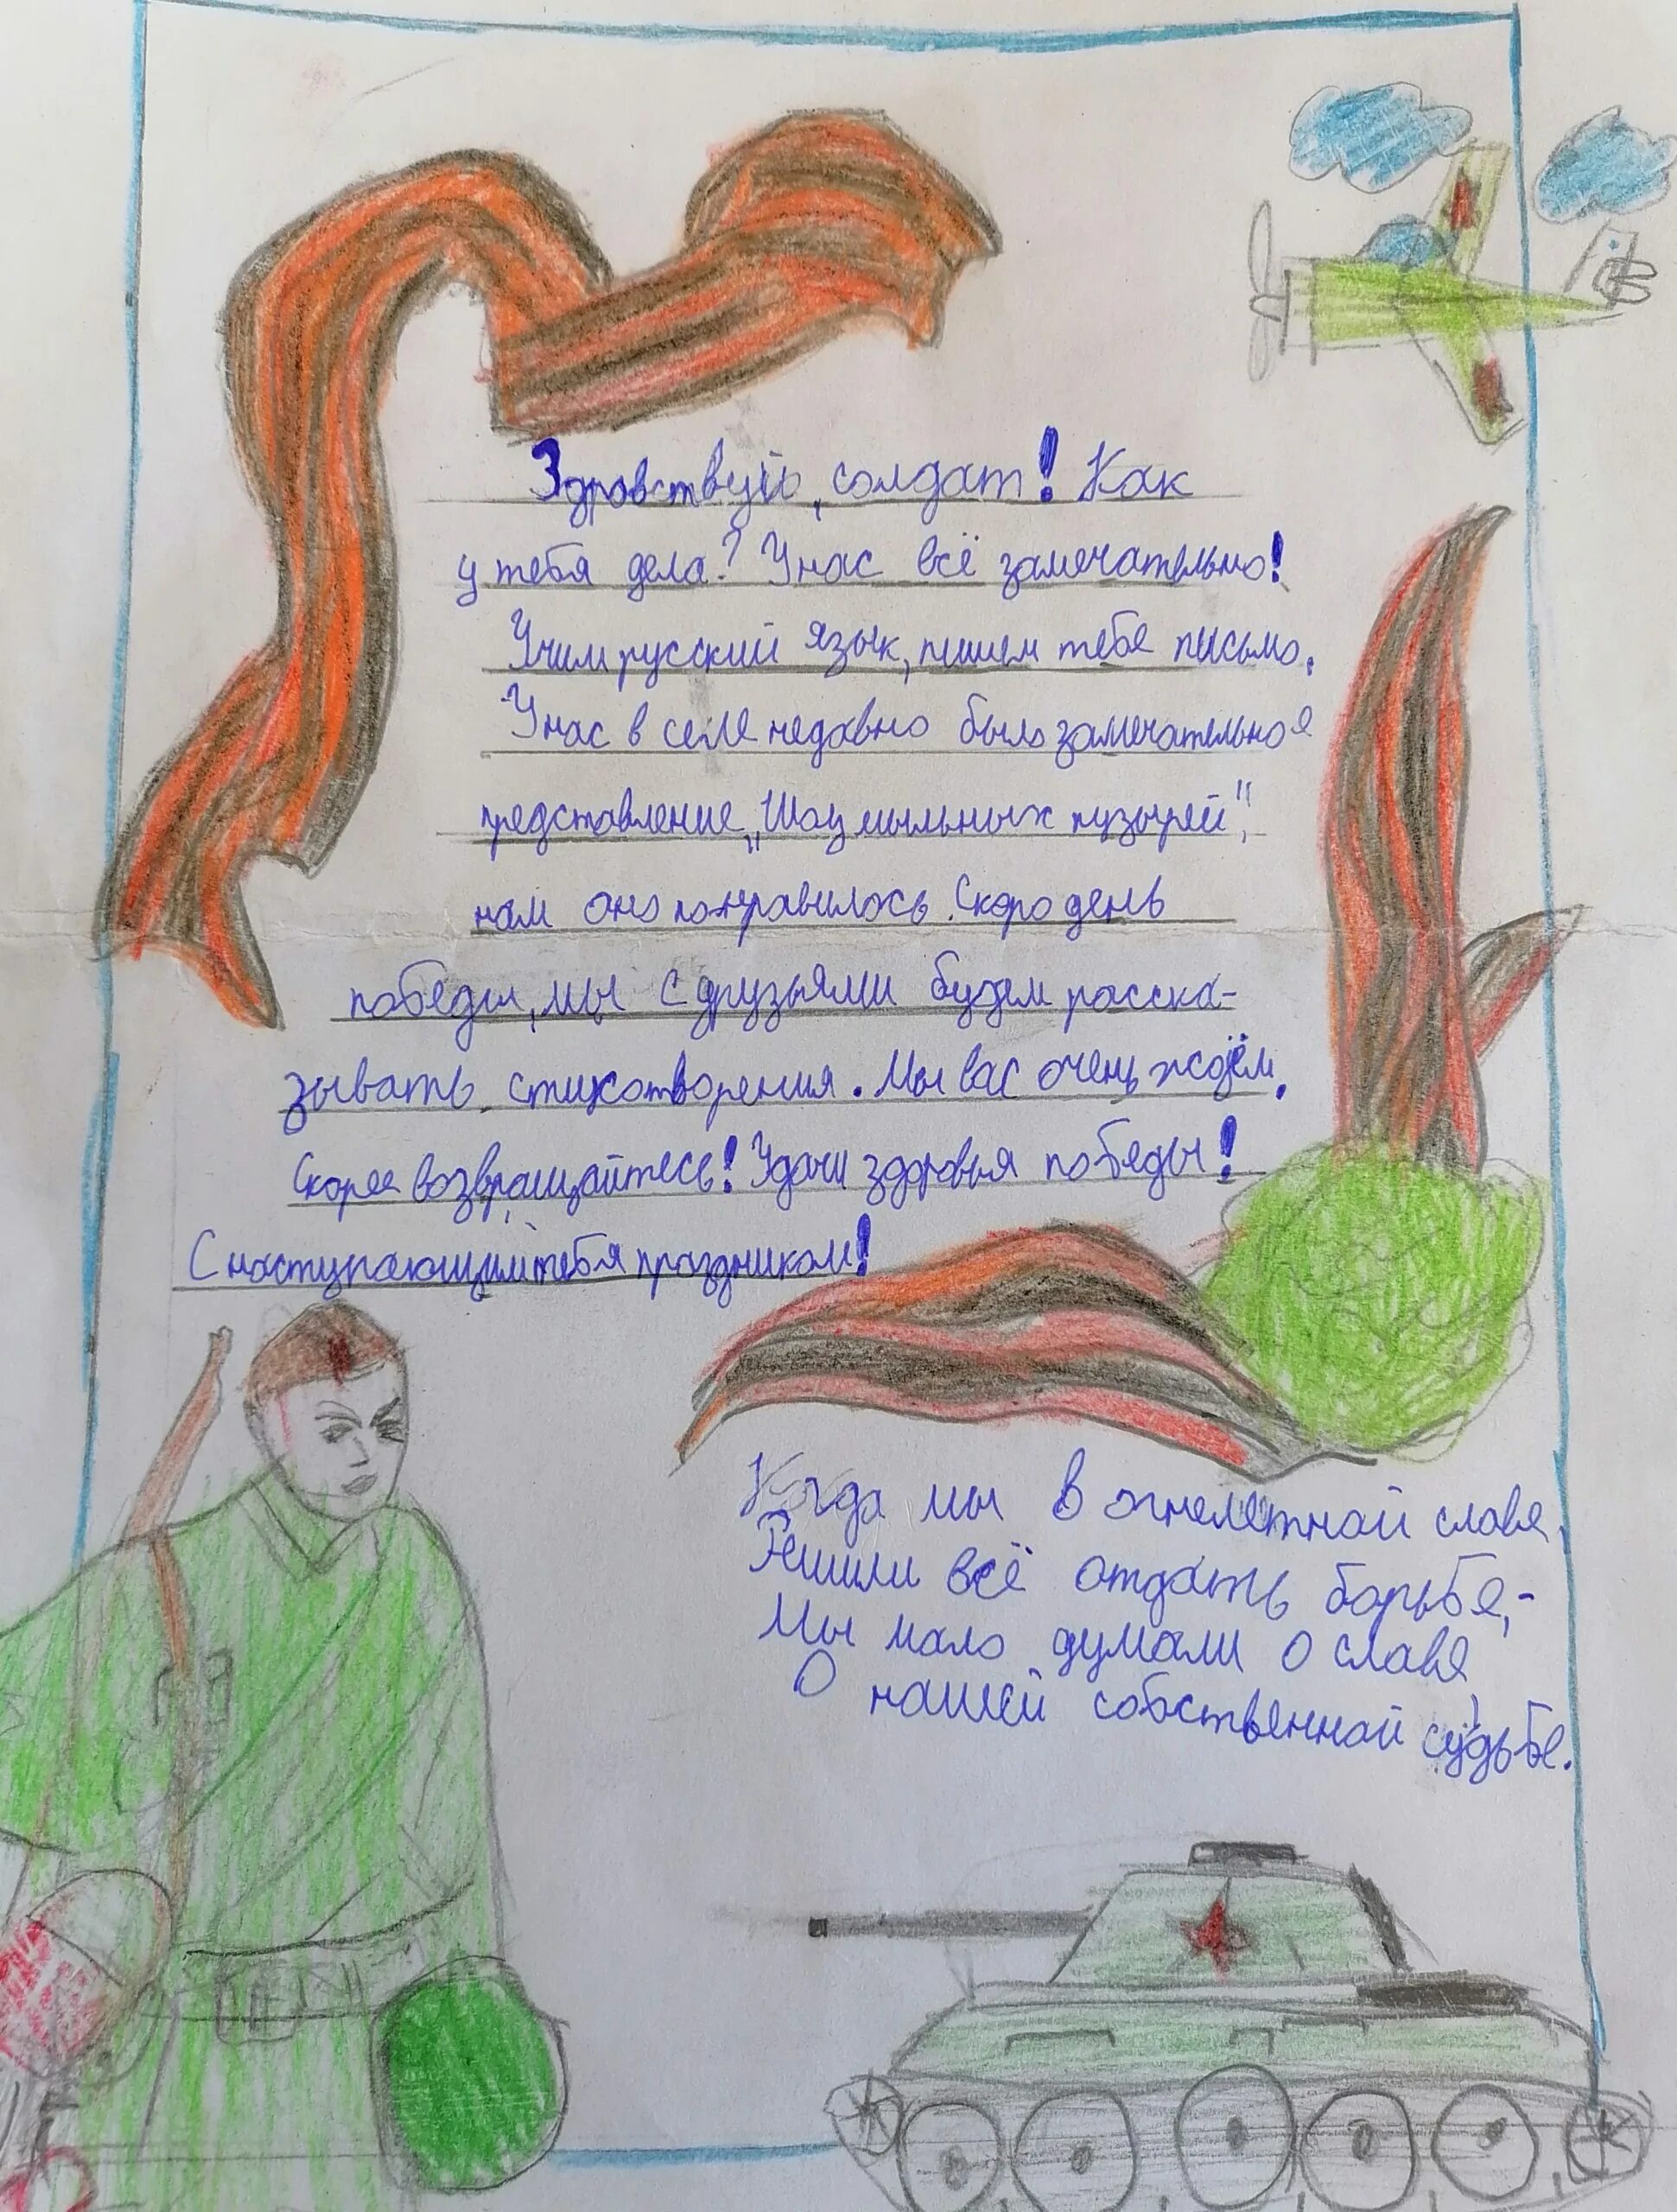 Здравствуй, солдат! Как
у тебя дела? У нас всё замечательно!
Учим русский язык, пишем тебе письмо.
У нас в селе недавно было замечательное
представление „Шоу мыльных пузырей",
нам оно понравилось. Скоро день
победы, мы с друзьями будем расска-
зывать стихотворения. Мы вас очень ждём.
Скорее возвращайтесь! Удачи здоровья победы!
С наступающим тебя праздником!
Когда мы в огнелетной славе,
Решили всё отдать борьбе,-
Мы мало думали о славе,
О нашей собственной судьбе.